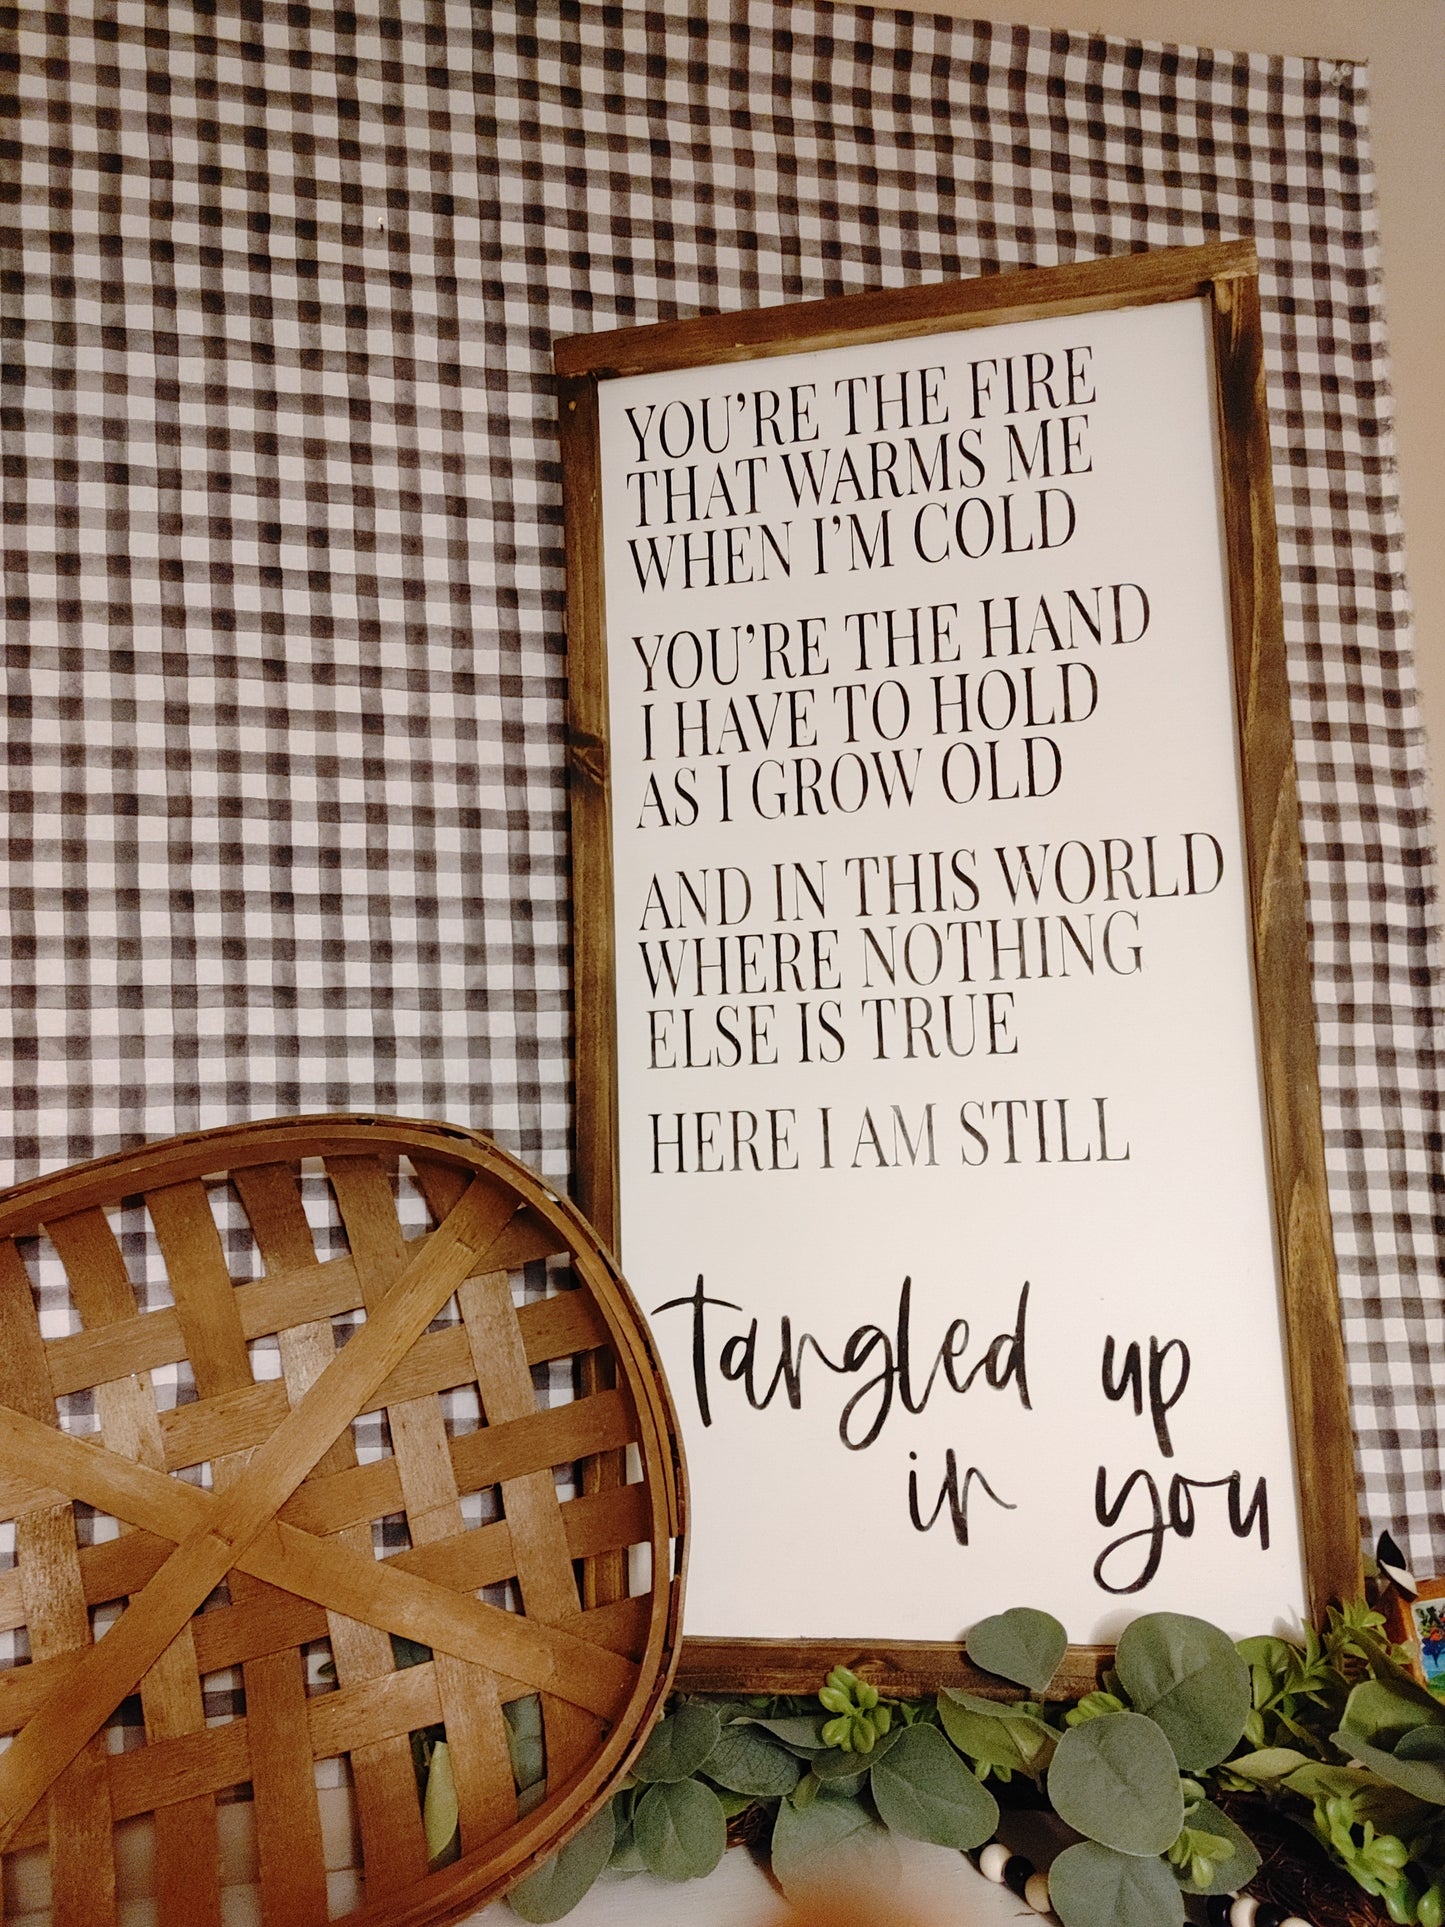 YOU'RE THE FIRE
THAT WARMS ME
WHEN I'M COLD
YOU'RE THE HAND
I HAVE TO HOLD
AS I GROW OLD
AND IN THIS WORLD
WHERE NOTHING
ELSE IS TRUE
HERE I AM STILL
tangled up
in you